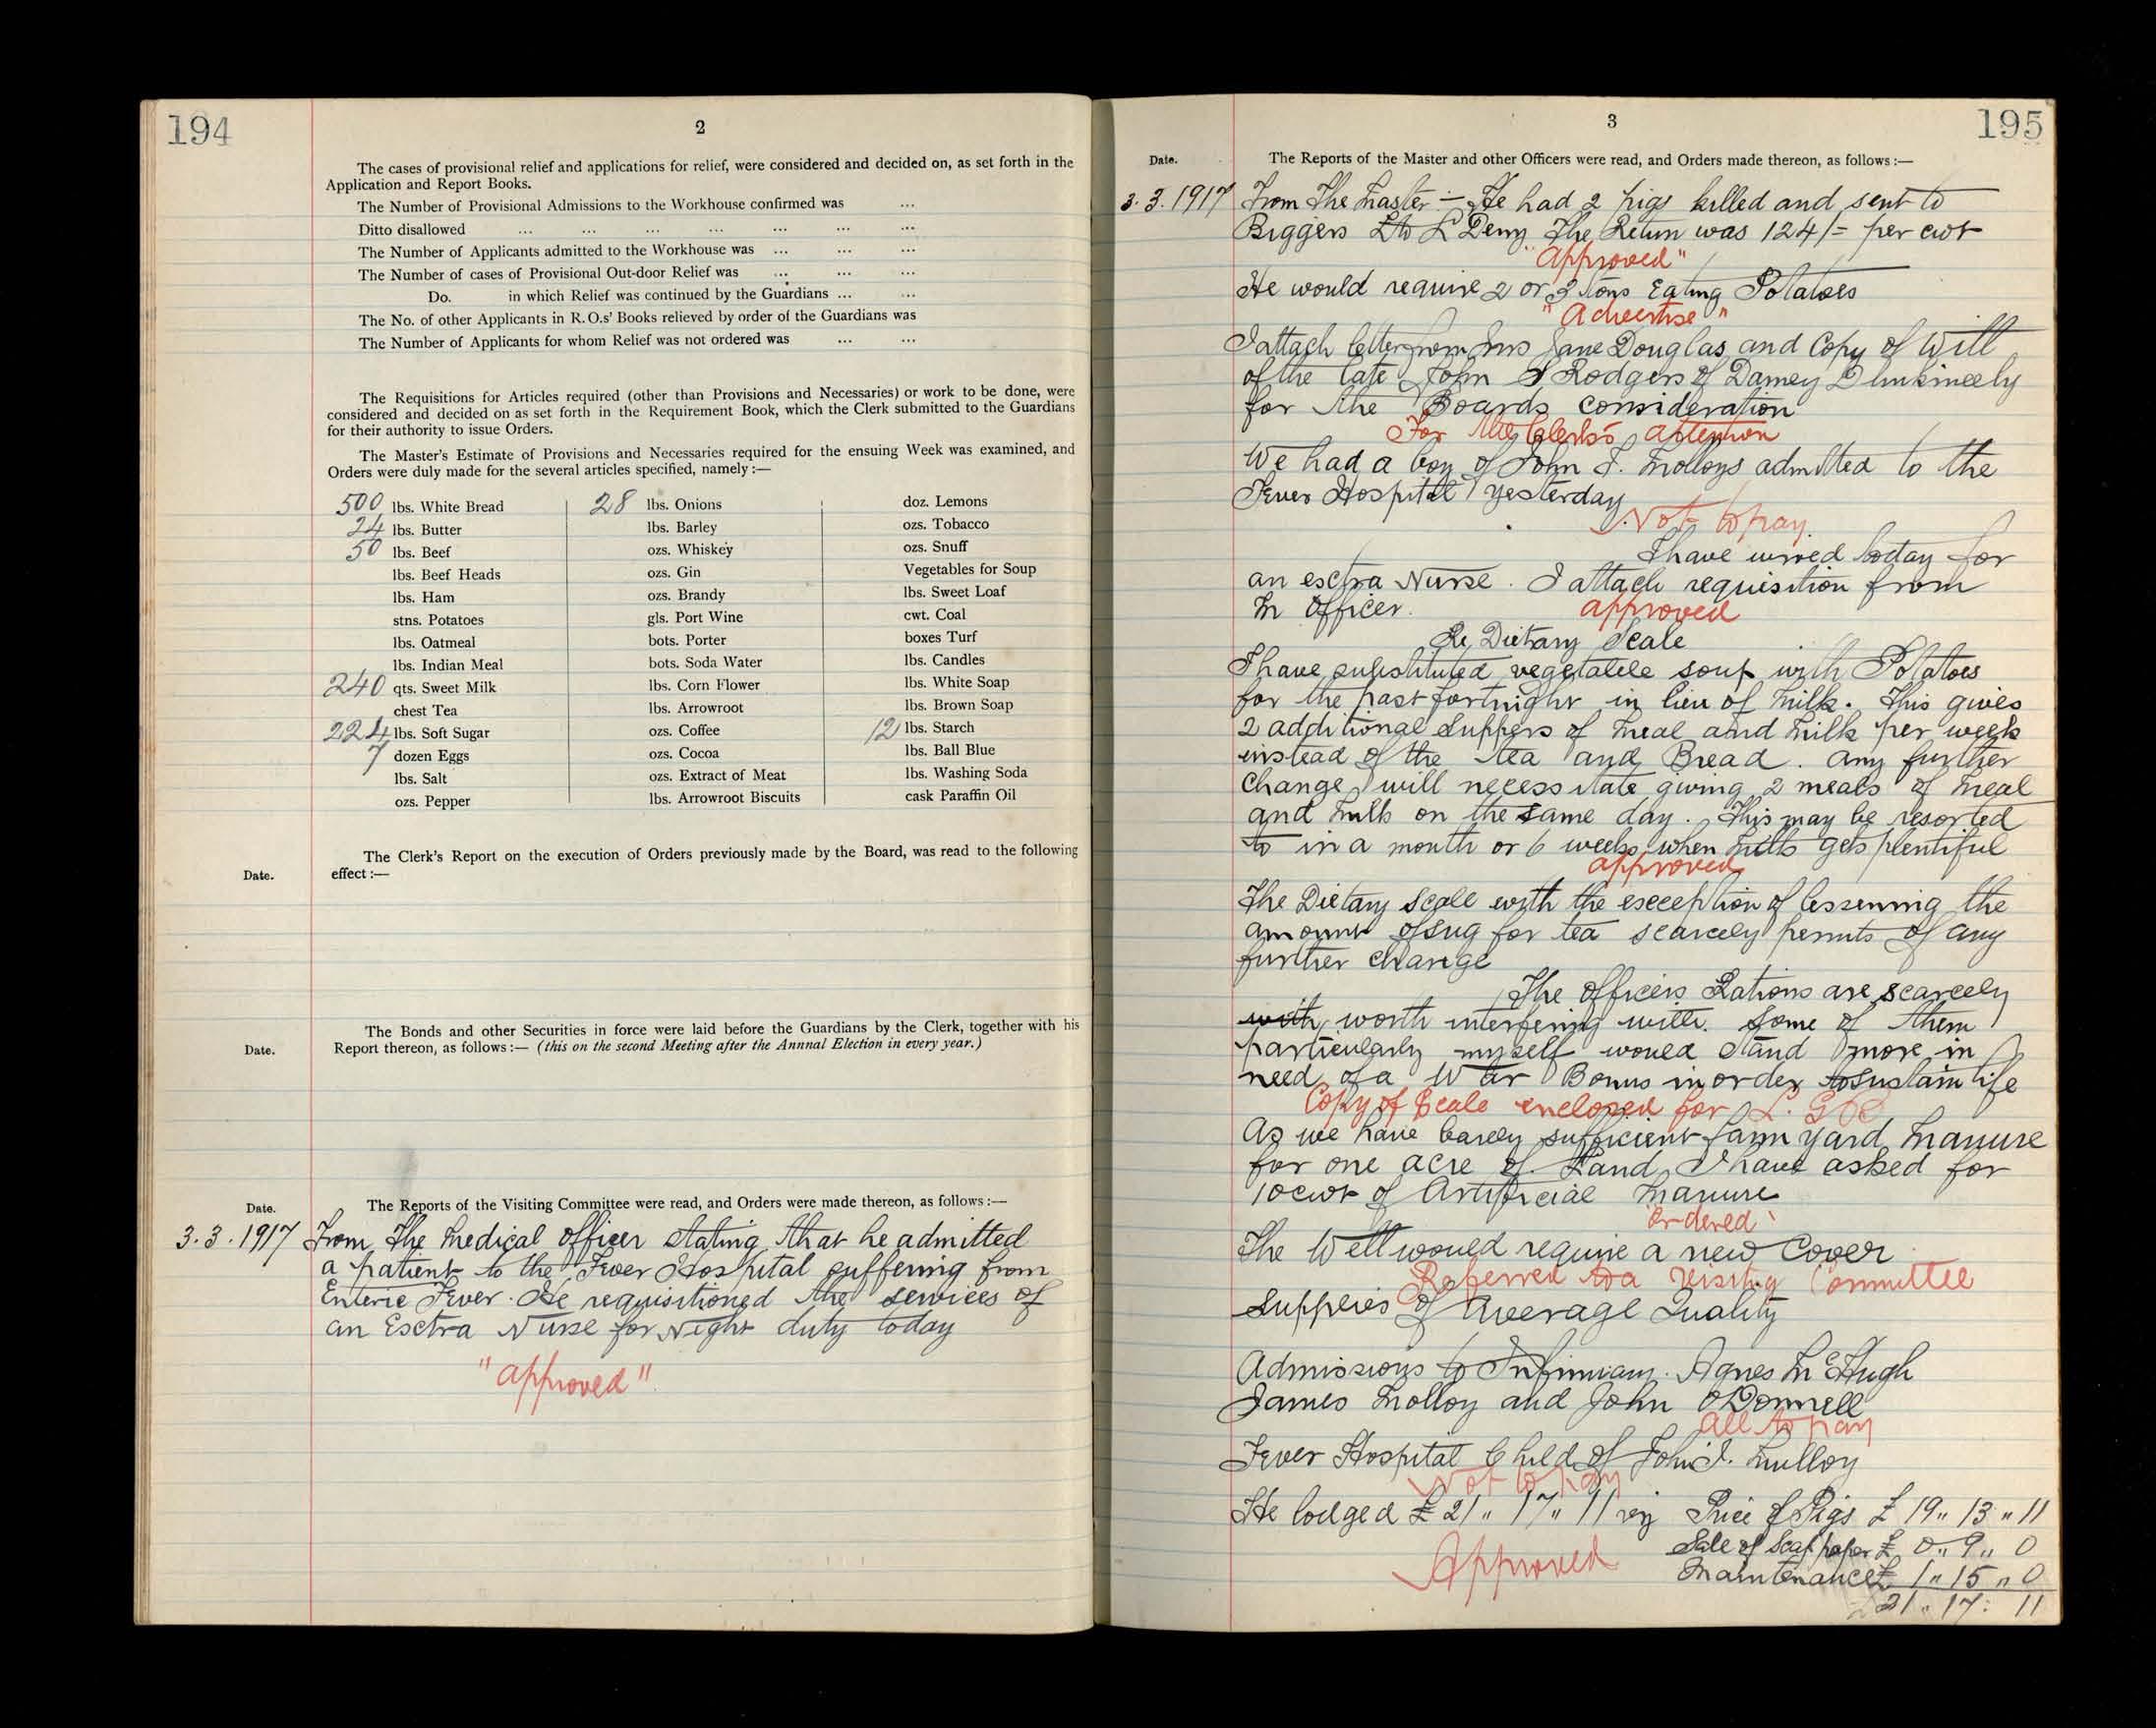 194
2
The cases of provisional relief and applications for relief, were considered and decided on, as set forth in the
Application and Report Books.
The Number of Provisional Admissions to the Workhouse confirmed was ...
Ditto disallowed ... ... ... ... ... ...
The Number of Applicants admitted to the Workhouse was ... ... ...
The Number of cases of Provisional Out-door Relief was ... ... ...
Do. in which Relief was continued by the Guardians ... ...
The No. of other Applicants in R.O.s' Books relieved by order of the Guardians was
The Number of Applicants for whom Relief was not ordered was ... ...
The Requisitions for Articles required (other than Provisions and Necessaries) or work to be done, were
considered and decided on as set forth in the Requirement Book, which the Clerk submitted to the Guardians
for their authority to issue Orders.
The Master's Estimate of Provisions and Necessaries required for the ensuing Week was examined, and
Orders were duly made for the several articles specified, namely :—
500 lbs. White Bread
24 lbs. Butter
50 lbs. Beef
lbs. Beef Heads
lbs. Ham
stns. Potatoes
lbs. Oatmeal
lbs. Indian Meal
240 qts. Sweet Milk
chest Tea
224 lbs. Soft Sugar
7 dozen Eggs
lbs. Salt
ozs. Pepper
28 lbs. Onions
lbs. Barley
ozs. Whiskey
ozs. Gin
ozs. Brandy
gls. Port Wine
bots. Porter
bots. Soda Water
lbs. Corn Flower
lbs. Arrowroot
ozs. Coffee
ozs. Cocoa
ozs. Extract of Meat
lbs. Arrowroot Biscuits
doz. Lemons
ozs. Tobacco
ozs. Snuff
Vegetables for Soup
lbs. Sweet Loaf
cwt. Coal
boxes Turf
lbs. Candles
lbs. White Soap
lbs. Brown Soap
12 lbs. Starch
lbs. Ball Blue
lbs. Washing Soda
cask Paraffin Oil
The Clerk's Report on the execution of Orders previously made by the Board, was read to the following
Date. effect :—
The Bonds and other Securities in force were laid before the Guardians by the Clerk, together with his
Date. Report thereon, as follows :— (this on the second Meeting after the Annnal Election in every year.)
Date. The Reports of the Visiting Committee were read, and Orders were made thereon, as follows :—
3.3.1917 From The Medical Officer stating that he admitted
a patient to the Fever Hospital suffering from
Enteric Fever. He requisitioned the services of
an Esctra Nurse for Night duty today
"approved"
195
3
Date. The Reports of the Master and other Officers were read, and Orders made thereon, as follows :—
3.3.1917 From The Master :- He had 2 pigs killed and sent to
Biggers Ltd L Derry The Return was 124/= per cwt
"approved"
He would require 2 or 3 tons Eating Potatoes
"Advertise"
I attach letter from Mrs Jane Douglas and Copy of Will
of the late John S Rodgers of Dunkineely
for the Boards consideration
For the Clerks attention
We had a boy of John J. Molloys admitted to the
Fever Hospital yesterday
Not to pay
I have wired today for
an esctra Nurse. I attach requisition from
M Officer.
approved
Re Dietary Scale
I have substituted vegetable soup with Potatoes
for the past fortnight in lieu of Milk. This gives
2 additional Suppers of Meal and Milk per week
instead of the tea and Bread. Any further
change will necessitate giving 2 meals of Meal
and Milk on the same day. This may be resorted
to in a month or 6 weeks when Milk gets plentiful
approved
The Dietary Scale with the esception of lessening the
amount of sug for tea scarcely permits of any
further change
The Officers Rations are scarcely
with worth interfering with. Some of them
particularly myself would stand more in
need of a War Bonus in order to sustain life
Copy of Scale enclosed for L.G.B
As we have barely sufficient farm yard Manure
for one acre of Land, I have asked for
10 cwt of Artificial Manure
Ordered
The Well would require a new Cover
Referred to a Visiting Committee
Supplies of Average Quality
Admissions to Infirmary. Agnes McHugh
James Molloy and John O'Donnell
All to pay
Fever Hospital Child of John J. Mulloy
Not to pay
He lodged £21„17„11 viz Price of Pigs £19„13„11
Sale of Scap paper £0„9„0
Approved
Maintenance £1„15„0
21„17:11